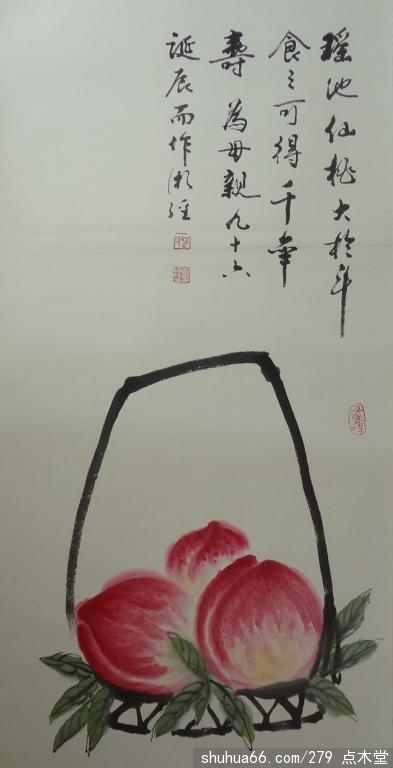 瑶池仙桃大於斗
食之可得千年
壽 為母親九十六
誕辰而作
shuhua66.com/279 点木堂